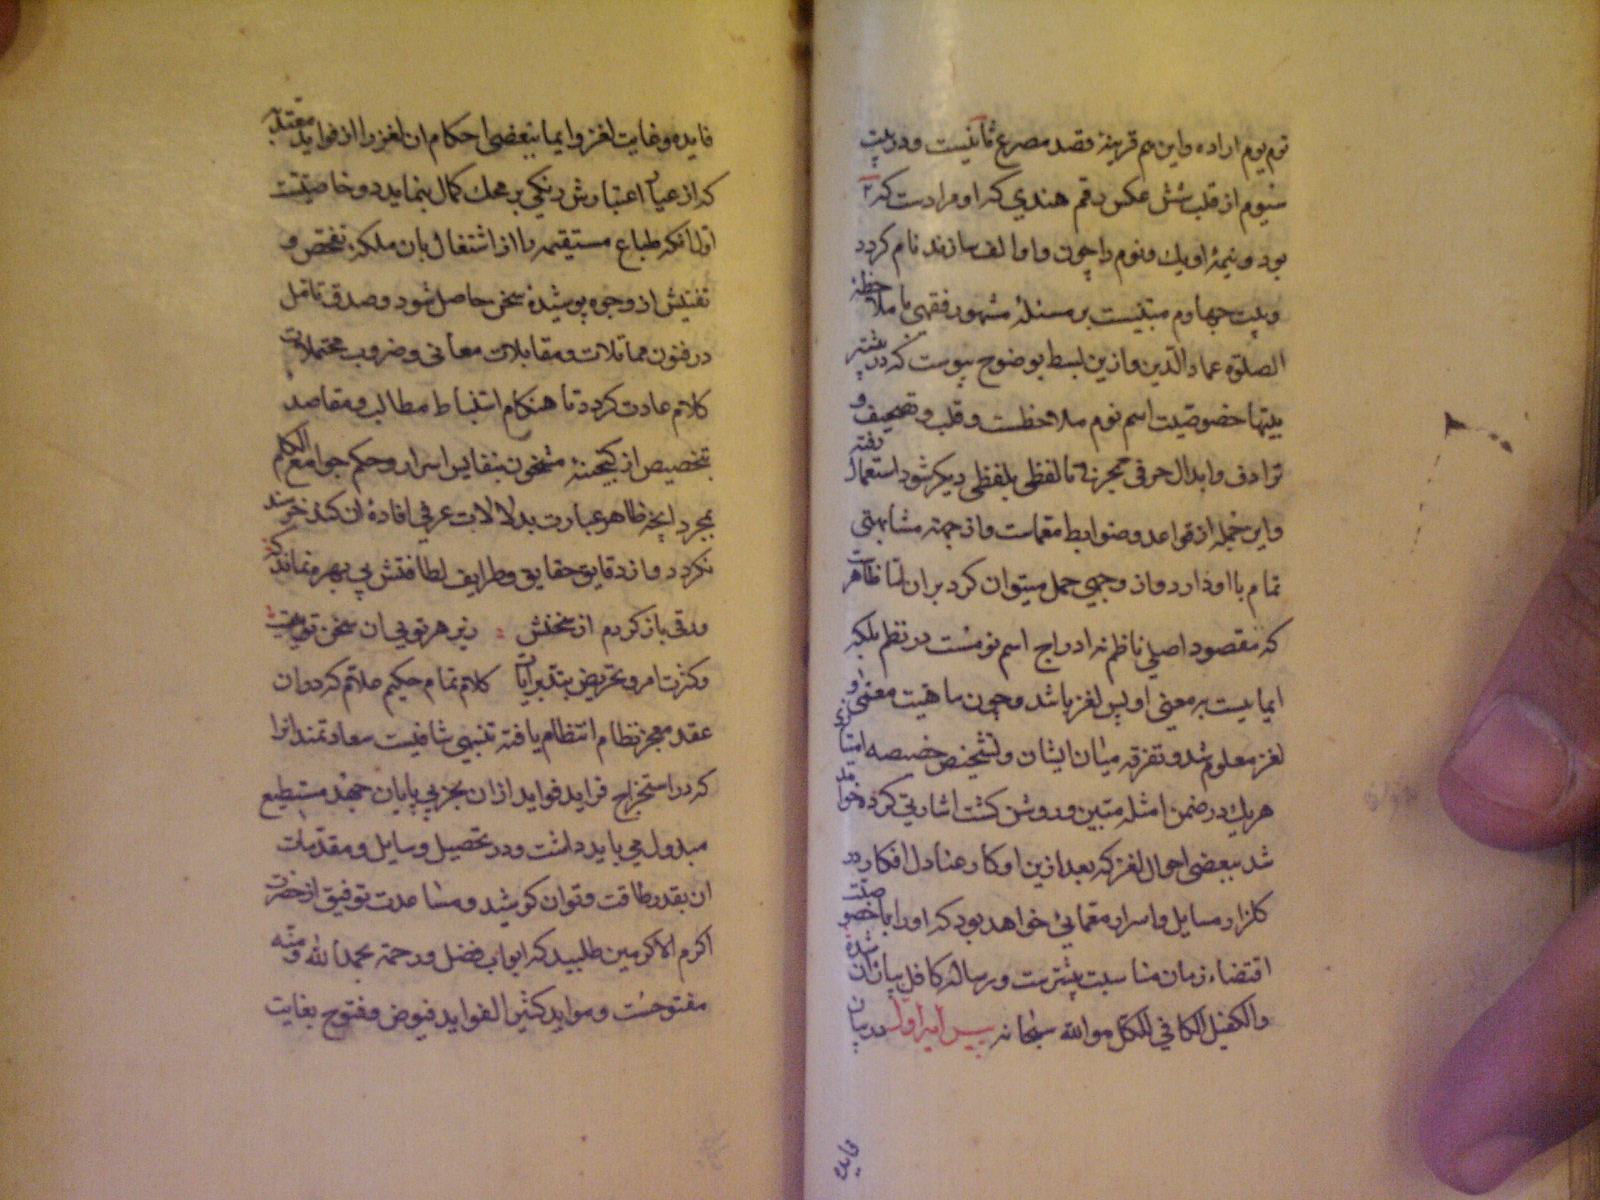 نوم یوم اراده و این هم قرینهٔ قصد مصرع ثانیست و در بیت
سیوم از قلب شش عکس رقم هندی که او مرادست که ۲
بود و نیمهٔ او یک و نوم را چون واو الف سازند نام کردد
و بیت چهارم مبتنیست بر مسئلهٔ مشهور فقهی با ملاحظهٔ
الصلوة عماد الدین و ازین بسط بوضوح پیوست که در بیشتر
بیتها خصوصیت اسم نوم ملاحظست و قلب و تصحیف و
ترادف و ابدال حرفی بحرفی تا لفظی بلفظی دیکر شود استعمال رفته
و این جمله از قواعد و ضوابط معماست و از جهت مشابهتی
تمام با او دارد و از وجهی حمل میتوان کرد بران لیا ظاهرست
که مقصود اصلی ناظم نه ادراج اسم نومست در نظم بلکه
ایماییست بر معنی او پس لغز باشد و چون ماهیت معمی و
لغز معلوم شد و تفرقه میان ایشان و تشخیص خصیصه امتیاز
هریک در ضمن امثله مبین و روشن کشت اشارتی کرده خواهد
شد ببعضی احوال لغز که بعد ازین اوکار عنادل افکار در
کلزار مسایل و اسرار معمایی خواهد بود که اورا با خصوصیت
اقتضاء زمان مناسبت بیشترست و رساله کافل بیان آن شده
والکفیل الکافی للکل هو الله سبحانه پیرایه اول در بیان
فایده
فایده و غایت لغز و ایما ببعضی احکام ان لغز را از فواید معتد به
که از عیار اعتبارش رنکی بر محک کمال بنماید دو خاصیتست
اول انکه طباع مستقیمه را از اشتغال بان ملکهٔ تفحص و
تفتیش از وجوه پوشیدهٔ سخن حاصل شود و صدق تامل
در فنون مماثلات و مقابلات معانی و ضروب محتملات
کلام عادت کردد تا هنکام استنباط مطالب و مقاصد
بتخصیص از کنجینهٔ مشحون بنفایس اسرار و حکم جوامع الکلم
بمجرد انچه ظاهر عبارت بدلالات عرفی افادهٔ ان کند خرسند
نکردد و از دقایق حقایق و ظرایف لطافتش بی بهره نماند که
ورقی باز کردم از سخنش زیر هر توی ان سخن توییست
و کثرت امر و تحریض بتدبر ایات کلام تمام حکیم علام که دران
عقد معجز نظام انتظام یافته تنبیهی شافیست سعادتمندانرا
که در استخراج فراید فواید ازان بحر بی پایان جهد مستطیع
مبذول می باید داشت و در تحصیل وسایل و مقدمات
ان بقدر طاقت و توان کوشید و مساعدت توفیق از حضرت
اکرم الاکرمین طلبید که ابواب فضل و رحمة بحمد الله و منه
مفتوحست و مواید کثیر الفواید فیوض و فتوح بغایت